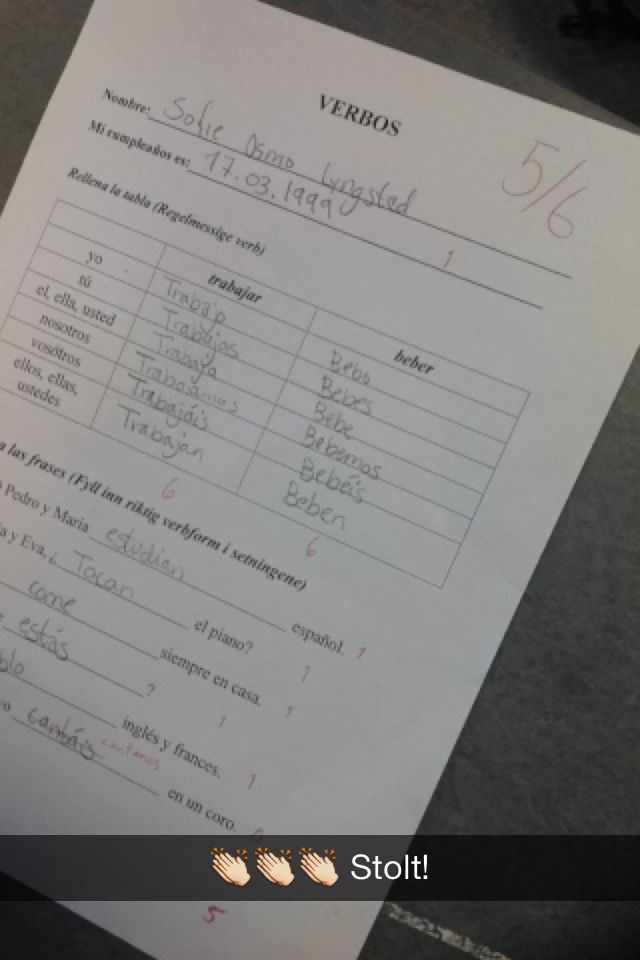 VERBOS
Nombre: Sofie Osmo Lyngsted
5/6
Mi cumpleaños es: 17.03.1999
1
Rellena la tabla (Regelmessige verb)
trabajar beber
yo Trabajo Bebo
tú Trabajas Bebes
el, ella, usted Trabaja Bebe
nosotros Trabajamos Bebemos
vosotros Trabajáis Bebéis
ellos, ellas, ustedes Trabajan Beben
6 6
a las frases (Fyll inn riktig verbform i setningene)
Pedro y Maria estudian español. 1
a y Eva, ¿ Tocan el piano? 1
come siempre en casa. 1
estás ? 1
blo inglés y frances. 1
cantáis cantamos en un coro. 0
👏👏👏 Stolt!
5